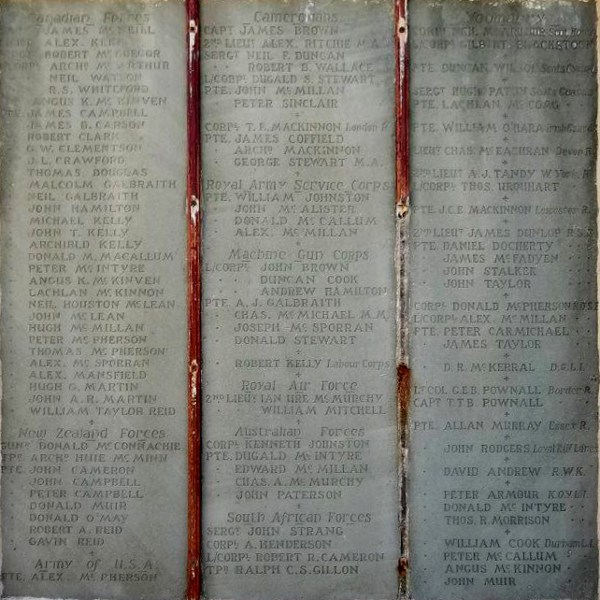 Canadian Forces
JAMES McNEILL
ALEX. KLEIN
ROBERT McGREGOR
ARCHD McARTHUR
NEIL WATSON
R.S. WHITEFORD
ANGUS K. McKINVEN
PTE. JAMES CAMPBELL
JAMES B. CARSON
ROBERT CLARK
G.W. CLEMENTSON
J.L. CRAWFORD
THOMAS DOUGLAS
MALCOLM GALBRAITH
NEIL GALBRAITH
JOHN HAMILTON
MICHAEL KELLY
JOHN T. KELLY
ARCHIBLD KELLY
DONALD M. MACALLUM
PETER McINTYRE
ANGUS K. McKINVEN
LACHLAN McKINNON
NEIL HOUSTON McLEAN
JOHN McLEAN
HUGH McMILLAN
PETER McPHERSON
THOMAS McPHERSON
ALEX. McSPORRAN
ALEX. MANSFIELD
HUGH G. MARTIN
JOHN A.R. MARTIN
WILLIAM TAYLOR REID
New Zealand Forces
DONALD McCONNACHIE
ARCHD HUIE McMINN
PTE. JOHN CAMERON
JOHN CAMPBELL
PETER CAMPBELL
DONALD MUIR
DONALD O'MAY
ROBERT A. REID
GAVIN REID
Army of U.S.A.
PTE. ALEX. McPHERSON
Cameronians
CAPT JAMES BROWN
2ND LIEUT ALEX. RITCHIE M.A.
SERGT NEIL F. DUNCAN
ROBERT B. WALLACE
L/CORPL DUGALD S. STEWART
PTE. JOHN McMILLAN
PETER SINCLAIR
CORPL T.F. MACKINNON London R
PTE. JAMES COFFIELD
ARCHD MACKINNON
GEORGE STEWART M.A.
Royal Army Service Corps
PTE. WILLIAM JOHNSTON
JOHN McALISTER
DONALD McCALLUM
ALEX. McMILLAN
Machine Gun Corps
L/CORPL JOHN BROWN
DUNCAN COOK
ANDREW HAMILTON
PTE. A.J. GALBRAITH
CHAS. McMICHAEL M.M.
JOSEPH McSPORRAN
DONALD STEWART
ROBERT KELLY Labour Corps
Royal Air Force
2ND LIEUT IAN URE McMURCHY
WILLIAM MITCHELL
Australian Forces
CORPL KENNETH JOHNSTON
PTE. DUGALD McINTYRE
EDWARD McMILLAN
CHAS. A. McMURCHY
JOHN PATERSON
South African Forces
SERGT JOHN STRANG
CORPL A. HENDERSON
L/CORPL ROBERT R. CAMERON
TPR RALPH C.S. GILLON
Yeomanry
CORPL NEIL McARTHUR
GILBERT BLACKSTOCK
PTE. DUNCAN WILSON Scots
SERGT HUGH PATON Scots
PTE. LACHLAN McCOAG
PTE. WILLIAM O'HARA Irish
LIEUT CHAS. McEACHRAN Devon R
2ND LIEUT A.J. TANDY
L/CORPL THOS. URQUHART
PTE. J.C.E. MACKINNON Leicester R.
2ND LIEUT JAMES DUNLOP
PTE. DANIEL DOCHERTY
JAMES McFADYEN
JOHN STALKER
JOHN TAYLOR
CORPL DONALD McPHERSON
L/CORPL ALEX. McMILLAN
PTE. PETER CARMICHAEL
JAMES TAYLOR
D.R. McKERRAL D.C.L.I.
LT COL G.E.B. POWNALL Border R
CAPT T.T.B. POWNALL
PTE. ALLAN MURRAY Essex R.
JOHN RODGERS
DAVID ANDREW R.W.K.
PETER ARMOUR K.O.Y.L.I.
DONALD McINTYRE
THOS. R. MORRISON
WILLIAM COOK Durham L.I.
PETER McCALLUM
ANGUS McKINNON
JOHN MUIR